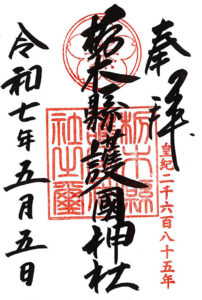 奉拝
皇紀二千六百八十五年
栃木縣護國神社
栃木縣護國神社之璽
令和七年五月五日